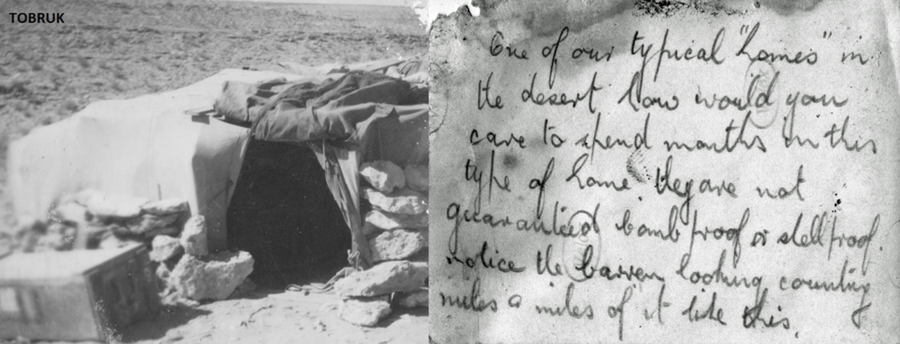 TOBRUK
One of our typical "homes" in
the desert how would you
care to spend months in this
type of home. They are not
guaranteed bomb proof or shell proof.
notice the barren looking country
miles a miles of it like this.